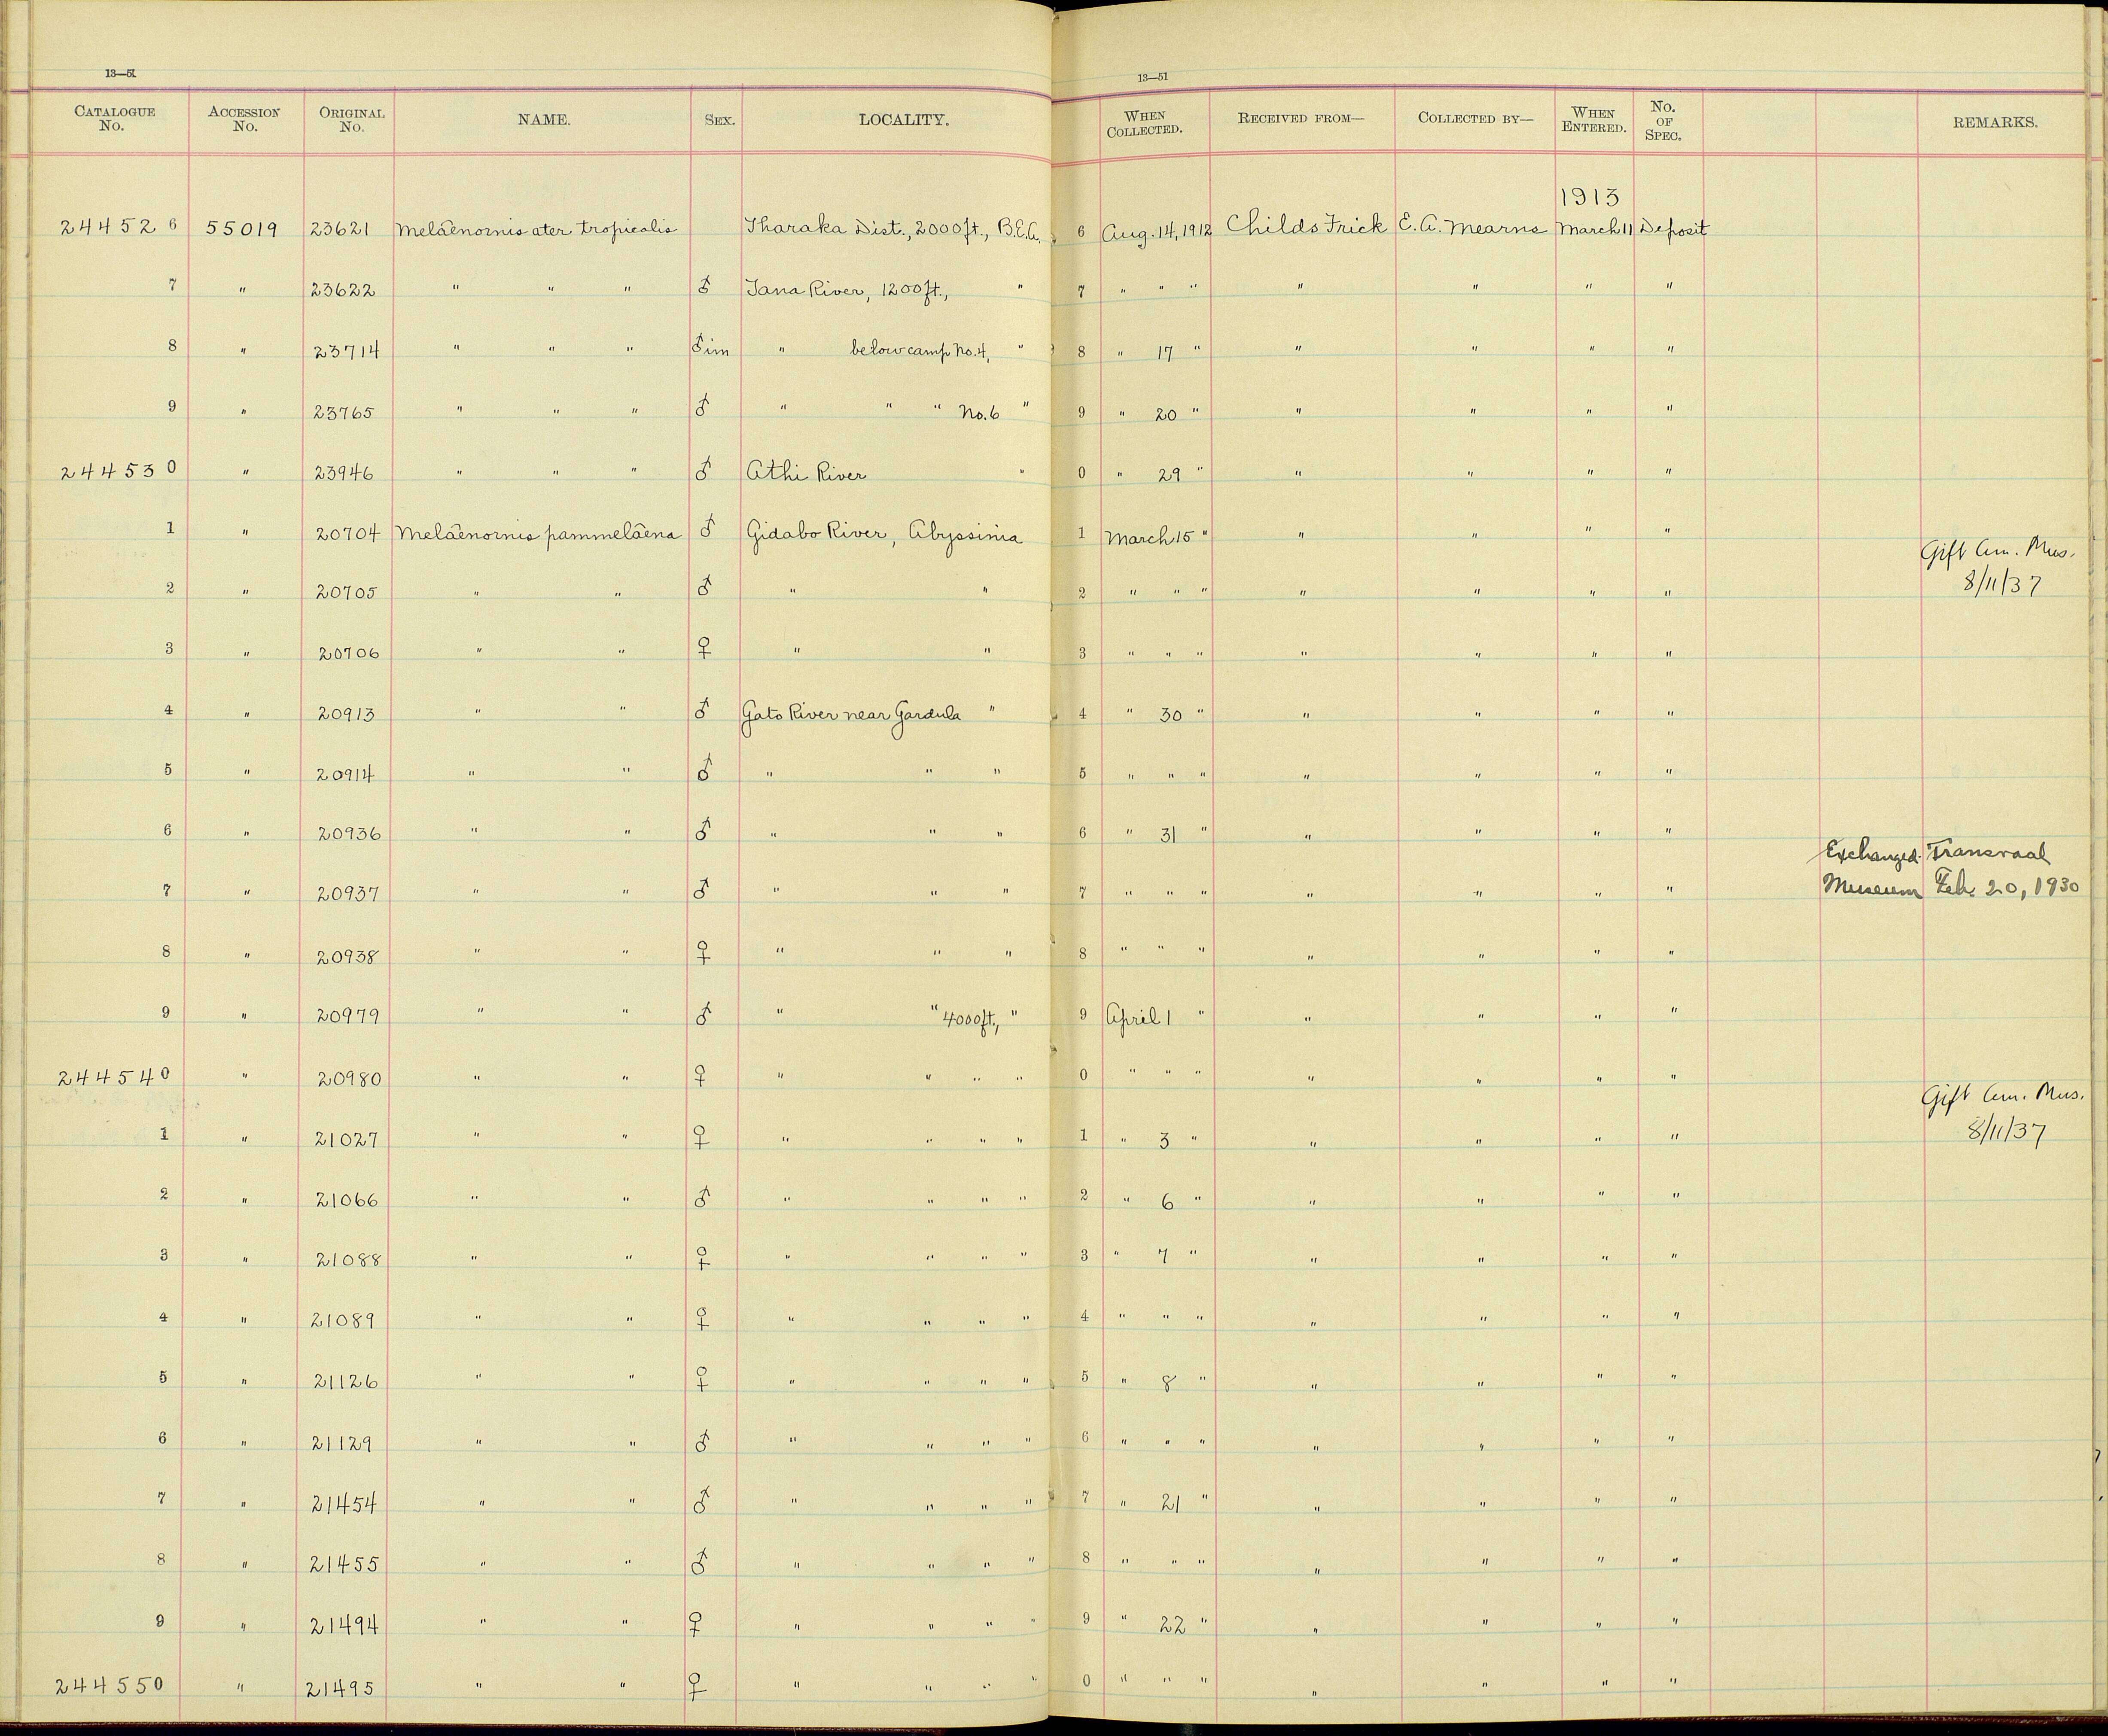 13—51
13—51
CATALOGUE No. ACCESSION No. ORIGINAL No. NAME. SEX. LOCALITY. WHEN COLLECTED. RECEIVED FROM— COLLECTED BY— WHEN ENTERED. No. OF SPEC. REMARKS.
1913
244526 55019 23621 Melaenornis ater tropicalis Tharaka Dist., 2000 ft., B.E.A. 6 Aug. 14, 1912 Childs Frick E. A. Mearns March 11 Deposit
7 " 23622 " " " ♂ Tana River, 1200 ft., " 7 " " " " " " "
8 " 23714 " " " ♂ im " below camp No. 4, " 8 " 17 " " " " "
9 " 23765 " " " ♂ " " " No. 6 " 9 " 20 " " " " "
244530 " 23946 " " " ♂ Athi River " 0 " 29 " " " " "
1 " 20704 Melaenornis pammelaena ♂ Gidabo River, Abyssinia 1 March 15 " " " " "
Gift Am. Mus.
2 " 20705 " " ♂ " " 2 " " " " " " " 8/11/37
3 " 20706 " " ♀ " " 3 " " " " " " "
4 " 20913 " " ♂ Gato River near Gardula " 4 " 30 " " " " "
5 " 20914 " " ♂ " " " 5 " " " " " " "
6 " 20936 " " ♂ " " " 6 " 31 " " " " "
Exchanged Transvaal
7 " 20937 " " ♂ " " " 7 " " " " " " " Museum Feb. 20, 1930
8 " 20938 " " ♀ " " " 8 " " " " " " "
9 " 20979 " " ♂ " " 4000 ft., " 9 April 1 " " " " "
244540 " 20980 " " ♀ " " " " 0 " " " " " " "
Gift Am. Mus.
1 " 21027 " " ♀ " " " " 1 " 3 " " " " " 8/11/37
2 " 21066 " " ♂ " " " " 2 " 6 " " " " "
3 " 21088 " " ♀ " " " " 3 " 7 " " " " "
4 " 21089 " " ♀ " " " " 4 " " " " " " "
5 " 21126 " " ♀ " " " " 5 " 8 " " " " "
6 " 21129 " " ♂ " " " " 6 " " " " " " "
7 " 21454 " " ♂ " " " " 7 " 21 " " " " "
8 " 21455 " " ♂ " " " " 8 " " " " " " "
9 " 21494 " " ♀ " " " " 9 " 22 " " " " "
244550 " 21495 " " ♀ " " " " 0 " " " " " " "